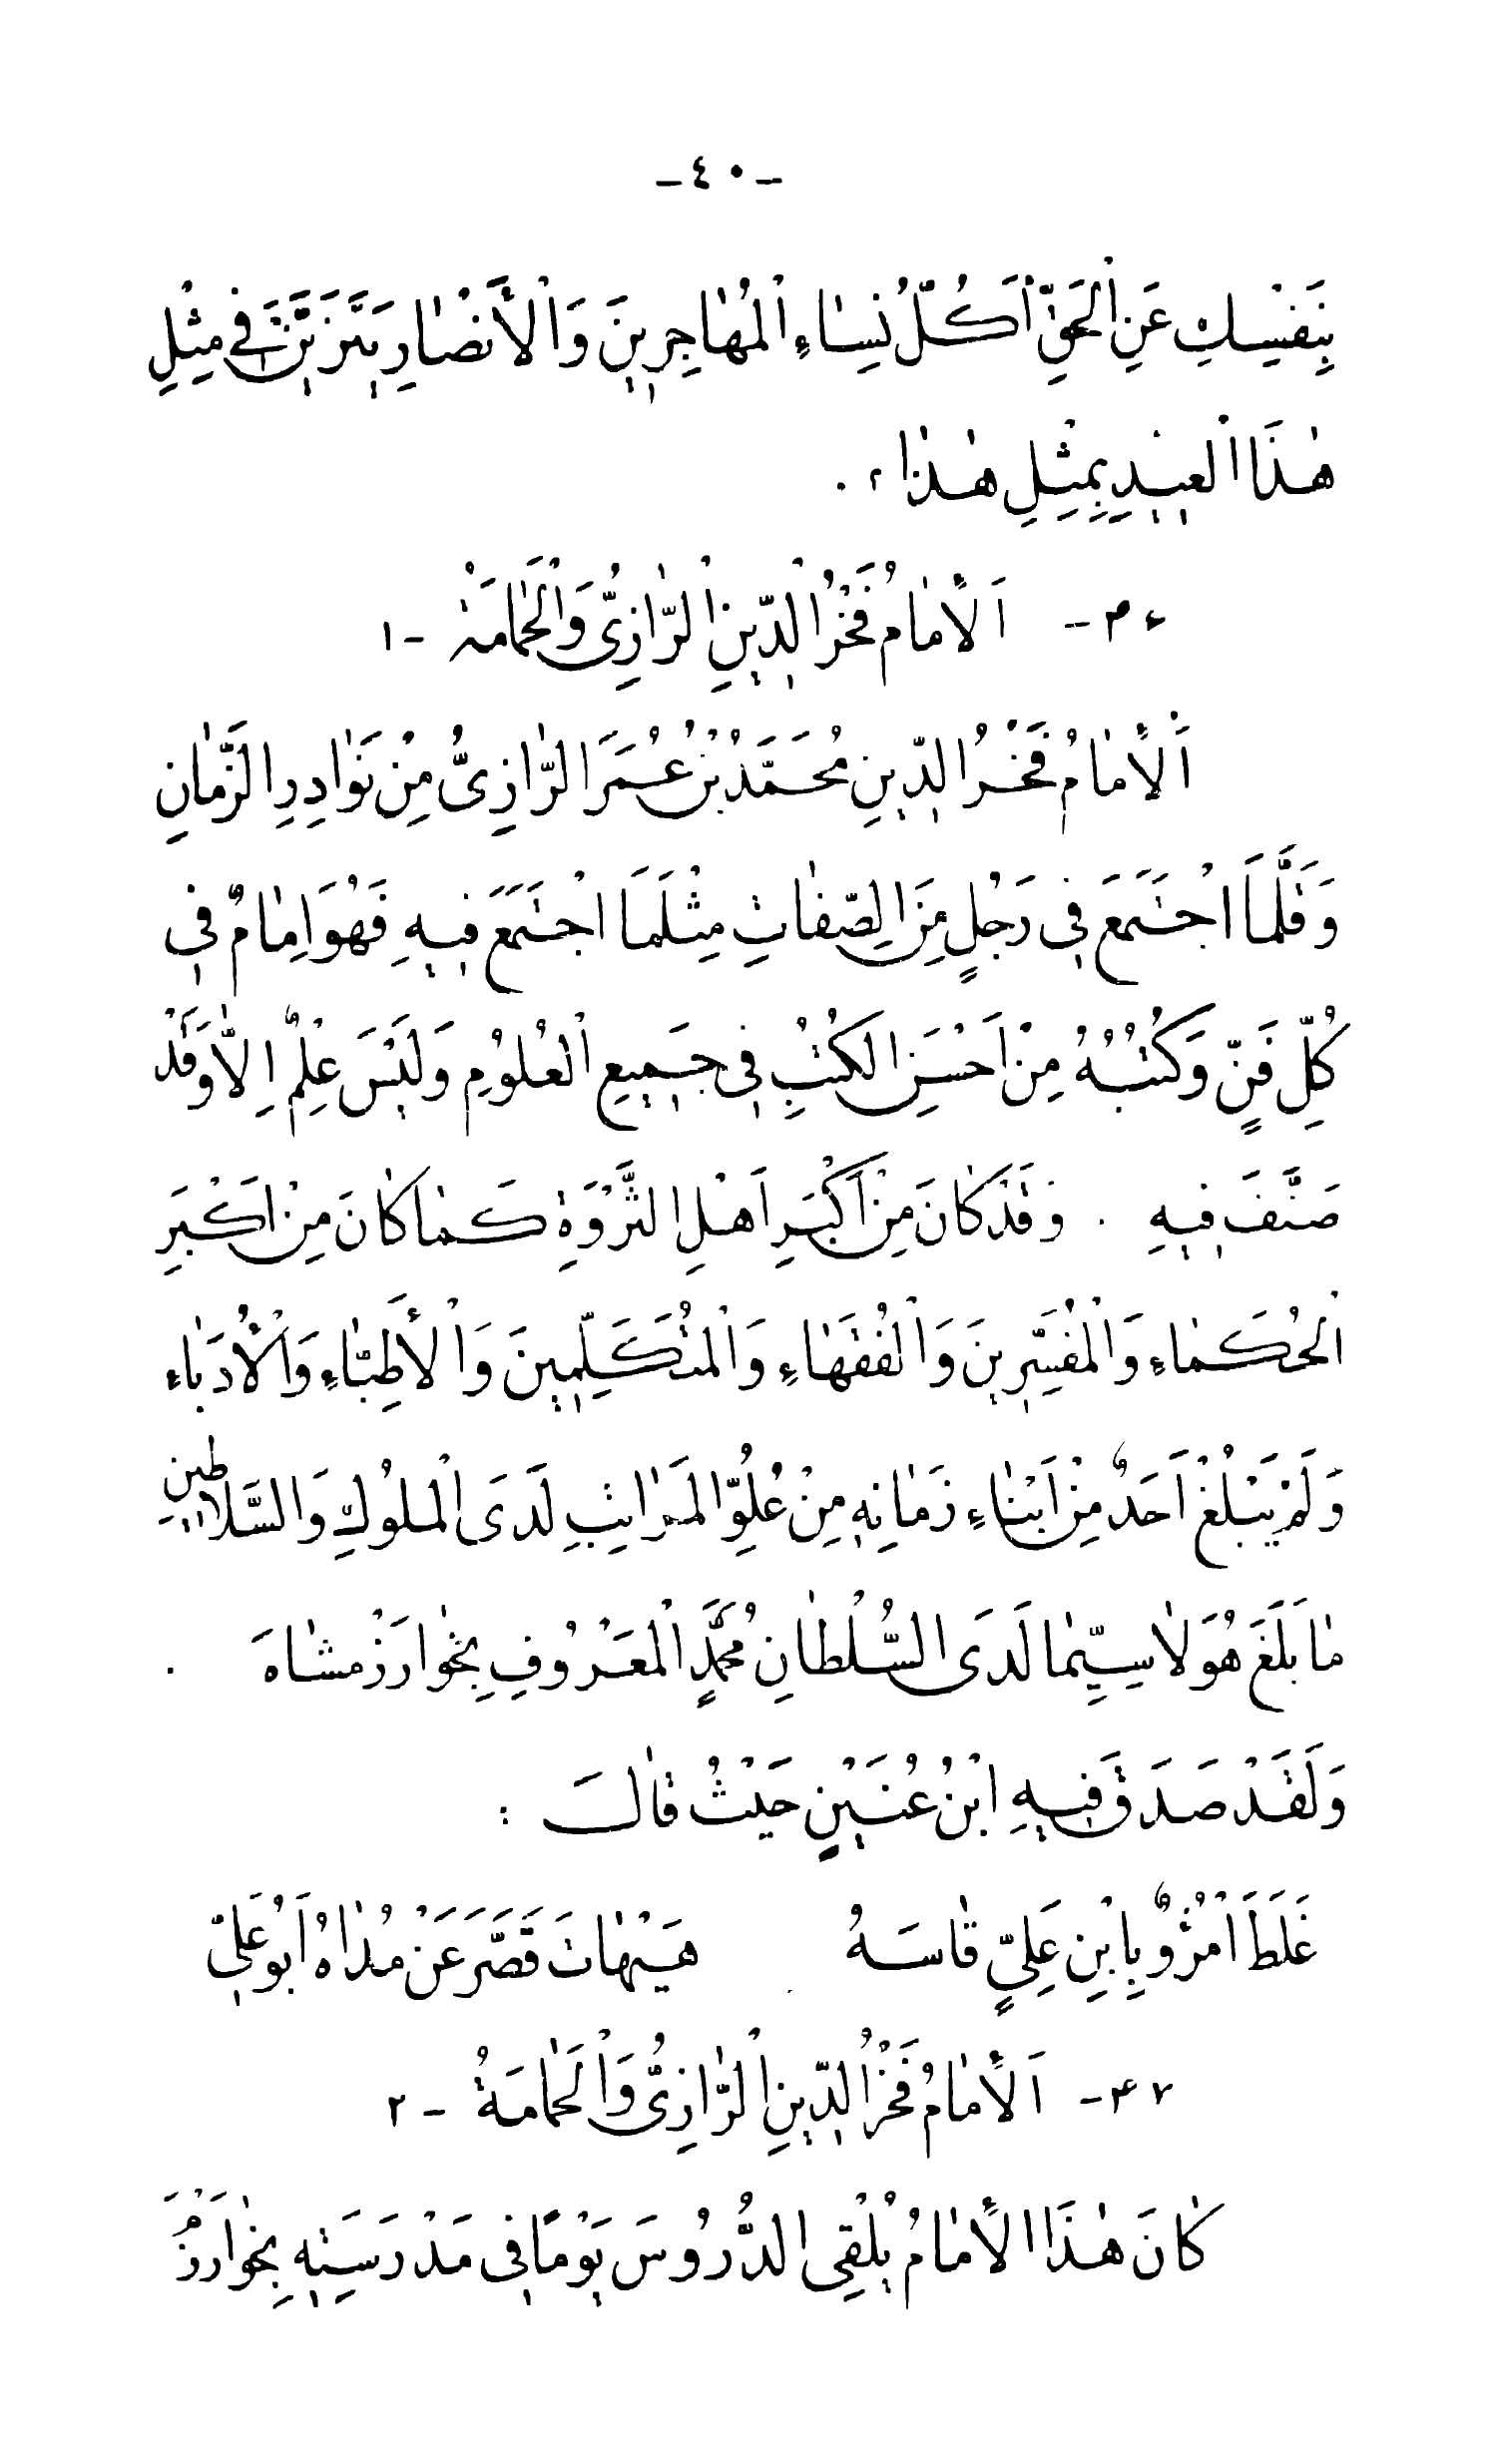 ـ ٤٠ ـ
بِنَفْسِكِ عَنِ الْحَقِّ اَكُلُّ نِسَاءِ الْمُهَاجِرِينَ وَالْأَنْصَارِ يَتَزَيَّنَّ فِي مِثْلِ
هٰذَا الْعِيدِ بِمِثْلِ هٰذَا ؟ .
٣٦ - اَلْأِمَامُ فَخْرُ الدِّينِ الرَّازِيُّ وَالْحَمَامَةُ - ١
اَلْأِمَامُ فَخْرُ الدِّينِ مُحَمَّدُ بْنُ عُمَرَ الرَّازِيُّ مِنْ نَوَادِرِ الزَّمَانِ
وَقَلَّمَا اجْتَمَعَ فِي رَجُلٍ مِنَ الصِّفَاتِ مِثْلَمَا اجْتَمَعَ فِيهِ فَهُوَ اِمَامٌ فِي
كُلِّ فَنٍّ وَكُتُبُهُ مِنْ اَحْسَنِ الْكُتُبِ فِي جَمِيعِ الْعُلُومِ وَلَيْسَ عِلْمٌ اِلَّا وَقَدْ
صَنَّفَ فِيهِ . وَقَدْ كَانَ مِنْ اَكْبَرِ اَهْلِ الثَّرْوَةِ كَمَا كَانَ مِنْ اَكْبَرِ
الْحُكَمَاءِ وَالْمُفَسِّرِينَ وَالْفُقَهَاءِ وَالْمُتَكَلِّمِينَ وَالْأَطِبَّاءِ وَالْأُدَبَاءِ
وَلَمْ يَبْلُغْ اَحَدٌ مِنْ اَبْنَاءِ زَمَانِهِ مِنْ عُلُوِّ الْمَرَاتِبِ لَدَى الْمُلُوكِ وَالسَّلَاطِينِ
مَا بَلَغَ هُوَ لَاسِيَّمَا لَدَى السُّلْطَانِ مُحَمَّدٍ الْمَعْرُوفِ بِخَوَارَزْمشَاهَ .
وَلَقَدْ صَدَقَ فِيهِ ابْنُ عُنَيْنٍ حَيْثُ قَالَ :
غَلَطَ امْرُؤٌ بِابْنِ عَلِيٍّ قَاسَهُ هَيْهَاتَ قَصَّرَ عَنْ مُدَاهُ اَبُو عَلِيّ
٣٧ - اَلْأِمَامُ فَخْرُ الدِّينِ الرَّازِيُّ وَالْحَمَامَةُ - ٢
كَانَ هٰذَا الْأِمَامُ يُلْقِي الدُّرُوسَ يَوْمًا فِي مَدْرَسَتِهِ بِخَوَارَزْمَ